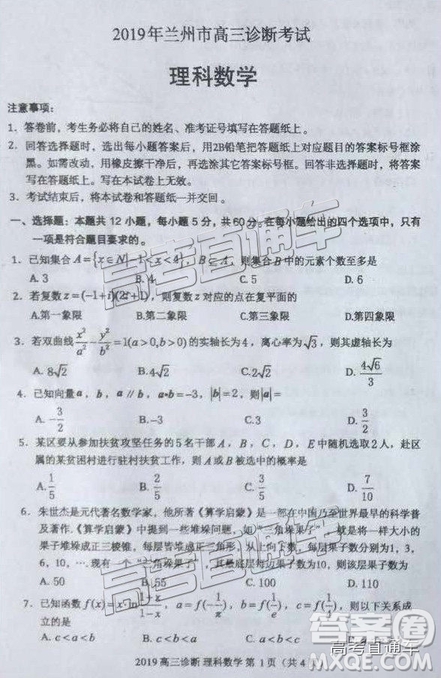 2019年兰州市高三诊断考试
理科数学
注意事项:
1. 答卷前,考生务必将自己的姓名、准考证号填写在答题纸上。
2. 回答选择题时,选出每小题答案后,用2B铅笔把答题纸上对应题目的答案标号框涂
黑。如需改动,用橡皮擦干净后,再选涂其它答案标号框。回答非选择题时,将答案
写在答题纸上。写在本试卷上无效。
3. 考试结束后,将本试卷和答题纸一并交回。
一、选择题:本题共12小题,每小题5分,共60分,在每小题给出的四个选项中,只有
一项是符合题目要求的。
1. 已知集合A={x∈N|-1<x<4},B⊆A,则集合B中的元素个数至多是
A. 3 B. 4 C. 5 D. 6
2. 若复数z=(-1+i)(2i+1),则复数z对应的点在复平面的
A.第一象限 B.第二象限 C.第三象限 D.第四象限
3. 若双曲线x²/a²-y²/b²=1(a>0,b>0)的实轴长为4,离心率为√3,则其虚轴长为
A. 8√2 B. 4√2 C. 2√2 D. 4√6/3
4. 已知向量a,b,a∥b,a•b=-3,|b|=2,则|a|=
A. -3/2 B. -3 C. 3 D. 3/2
5. 某区要从参加扶贫攻坚任务的5名干部A,B,C,D,E中随机选取2人,赴区
属的某贫困村进行驻村扶贫工作,则A或B被选中的概率是
A. 1/5 B. 2/5 C. 3/5 D. 7/10
6. 朱世杰是元代著名数学家,他所著《算学启蒙》是一部在中国乃至世界最早的科学普
及著作.《算学启蒙》中提到一些堆垛问题,如"三角垛果子",就是将一样大小的
果子堆垛成正三棱锥,每层皆堆成正三角形,从上向下数,每层果子数分别为1,3,
6,10,…现有一个"三角垛果子",其最底层每边果子数为10,则该层果子数为
A. 50 B. 55 C. 100 D. 110
7. 已知函数f(x)=x·ln
立的是
A. c<a<b
2019高三诊断 理科数学 第 1 页(共 4
高考直通车
高考直通车
高考直通车